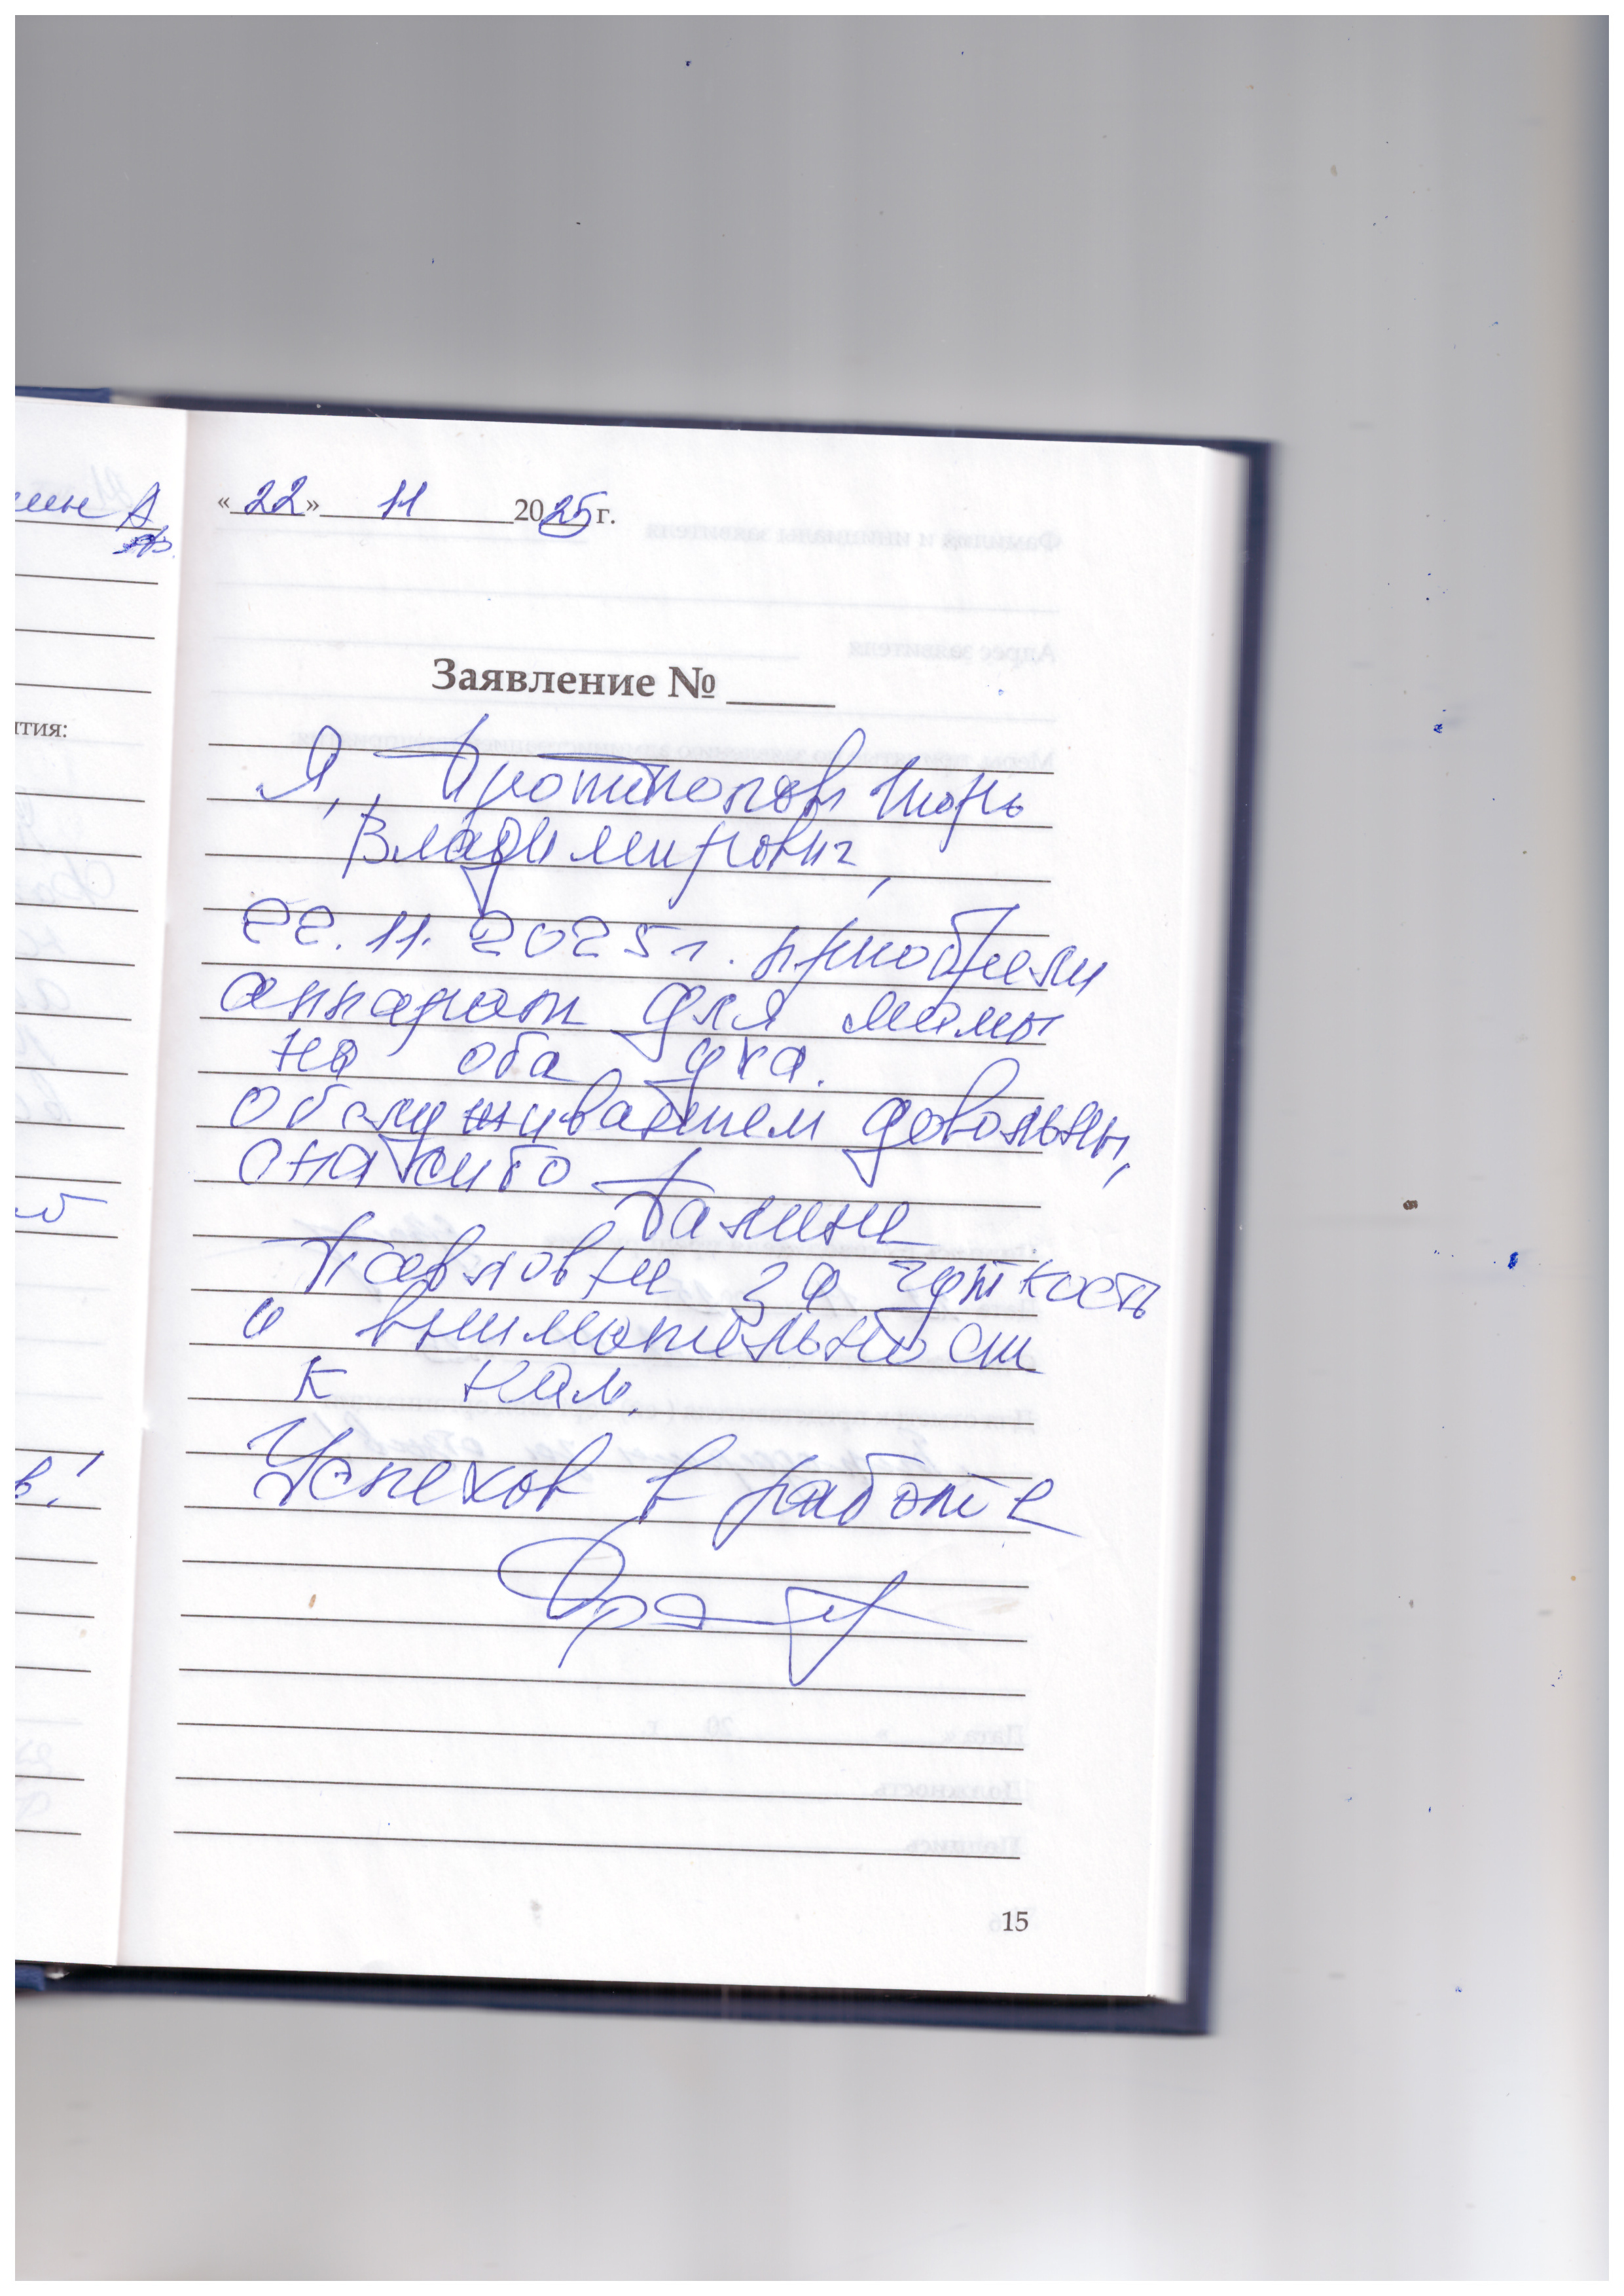 «22» 11 2025 г.
Заявление №
Я, Протопопов Игорь
Владимирович,
22.11.2025г. приобрели
аппарат для мамы
на оба уха.
Обслуживанием довольны,
спасибо Галине
Павловне за чуткость
и внимательность
к нам.
Успехов в работе
15
тия:
в!